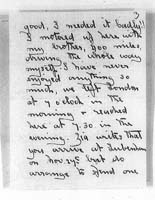 3
good. I needed it badly!
I motored up here with
my brother, 400 miles,
driving the whole way
myself. I have never
enjoyed anything so
much, we left London
at 4 o'clock in the
morning & reached
here at 7.30 in the
evening. writes that
you arrive at
on Nov 29th but do
arrange to spend one